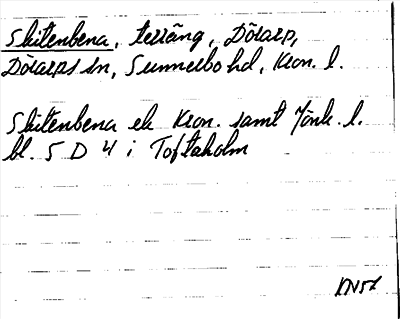 Skitenbena, terräng, Dörarp,
Dörarps sn, Sunnerbo hd, Kron. l.
Skitenbena ek Kron. samt Jönk. l.
bl. 5 D 4 i Toftaholm